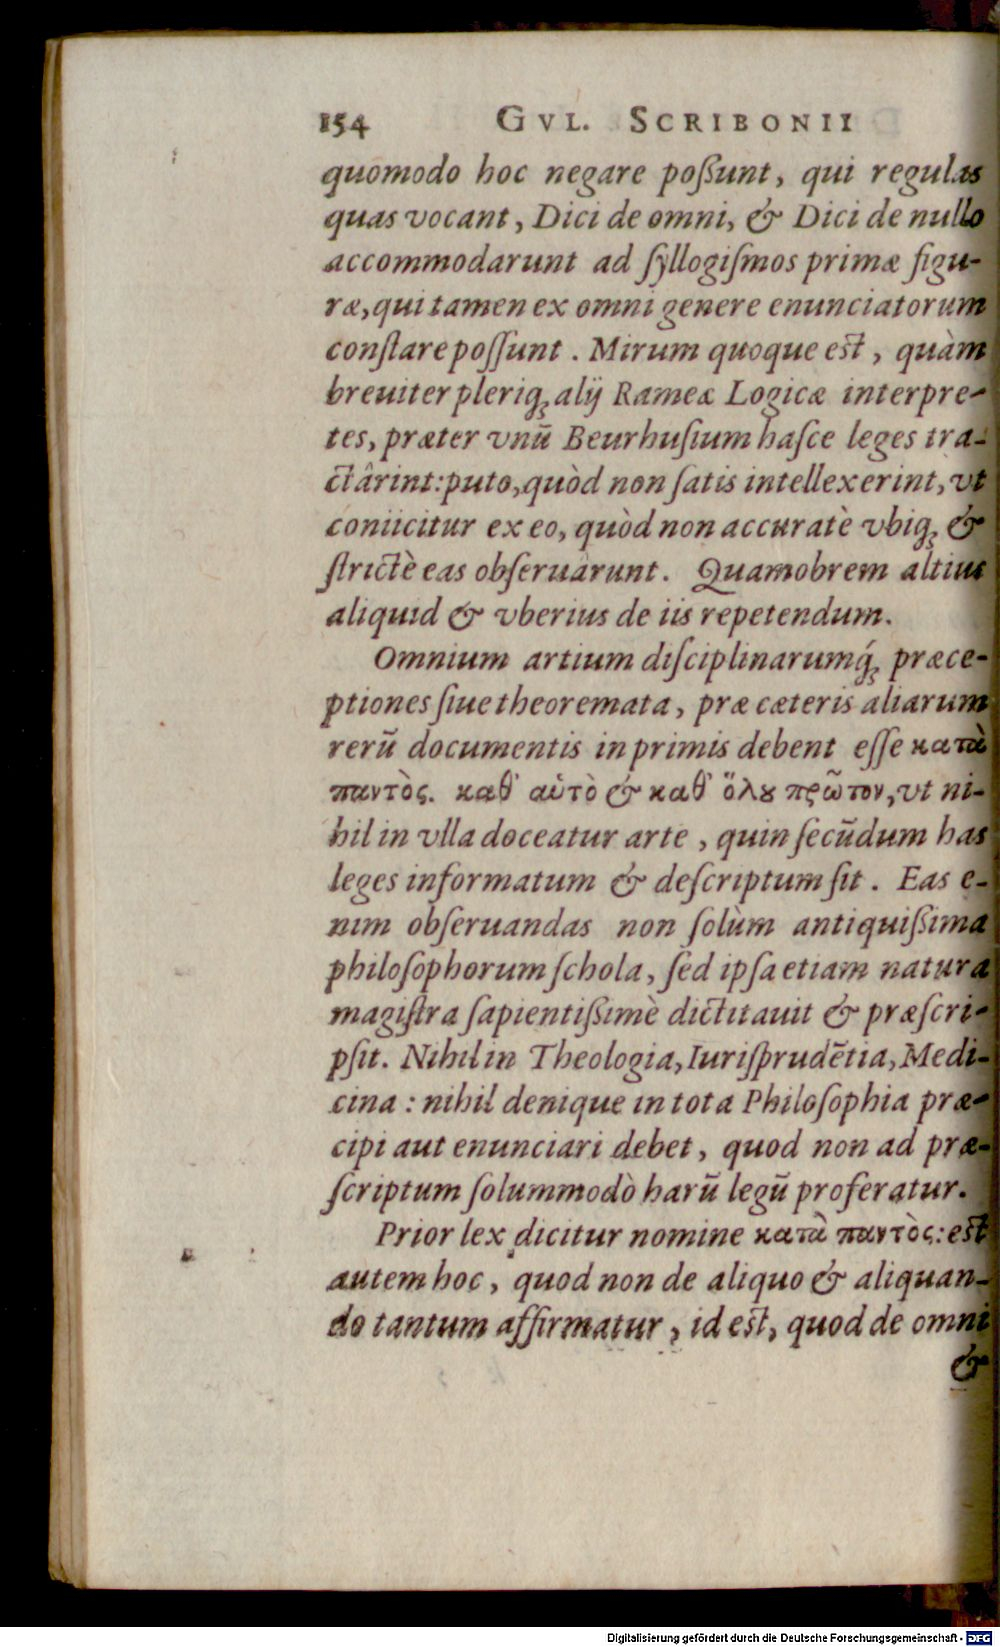 154 GVL. SCRIBONII
quomodo hoc negare poßunt, qui regulas
quas vocant, Dici de omni, & Dici de nullo
accommodarunt ad ſyllogiſmos primæ figu-
ræ, qui tamen ex omni genere enunciatorum
conſtare poſſunt. Mirum quoque est, quàm
breuiter pleriq; alij Rameæ Logicæ interpre-
tes, præter vnũ Beurhuſium haſce leges tra-
ctârint: puto, quòd non ſatis intellexerint, vt
coniicitur ex eo, quòd non accuratè vbiq; &
ſtrictè eas obſeruârunt. Quamobrem altius
aliquid & vberius de iis repetendum.
Omnium artium diſciplinarumq́; præce-
ptiones ſiue theoremata, præ cæteris aliarum
rerũ documentis in primis debent eſſe κατὰ
παντὸς. καθ᾽ αὑτὸ & καθ᾽ ὅλȣ πρῶτον, vt ni-
hil in vlla doceatur arte, quin ſecũdum has
leges informatum & deſcriptum ſit. Eas e-
nim obſeruandas non ſolùm antiquißima
philoſophorum ſchola, ſed ipſa etiam natura
magiſtra ſapientißimè dictitauit & præſcri-
pſit. Nihil in Theologia, Iuriſprudẽtia, Medi-
cina: nihil denique in tota Philoſophia præ-
cipi aut enunciari debet, quod non ad præ-
ſcriptum ſolummodò harũ legũ proferatur.
Prior lex dicitur nomine κατὰ παντὸς: est
autem hoc, quod non de aliquo & aliquan-
do tantum affirmatur, id est, quod de omni
&
Digitalisierung gefördert durch die Deutsche Forschungsgemeinschaft - DFG